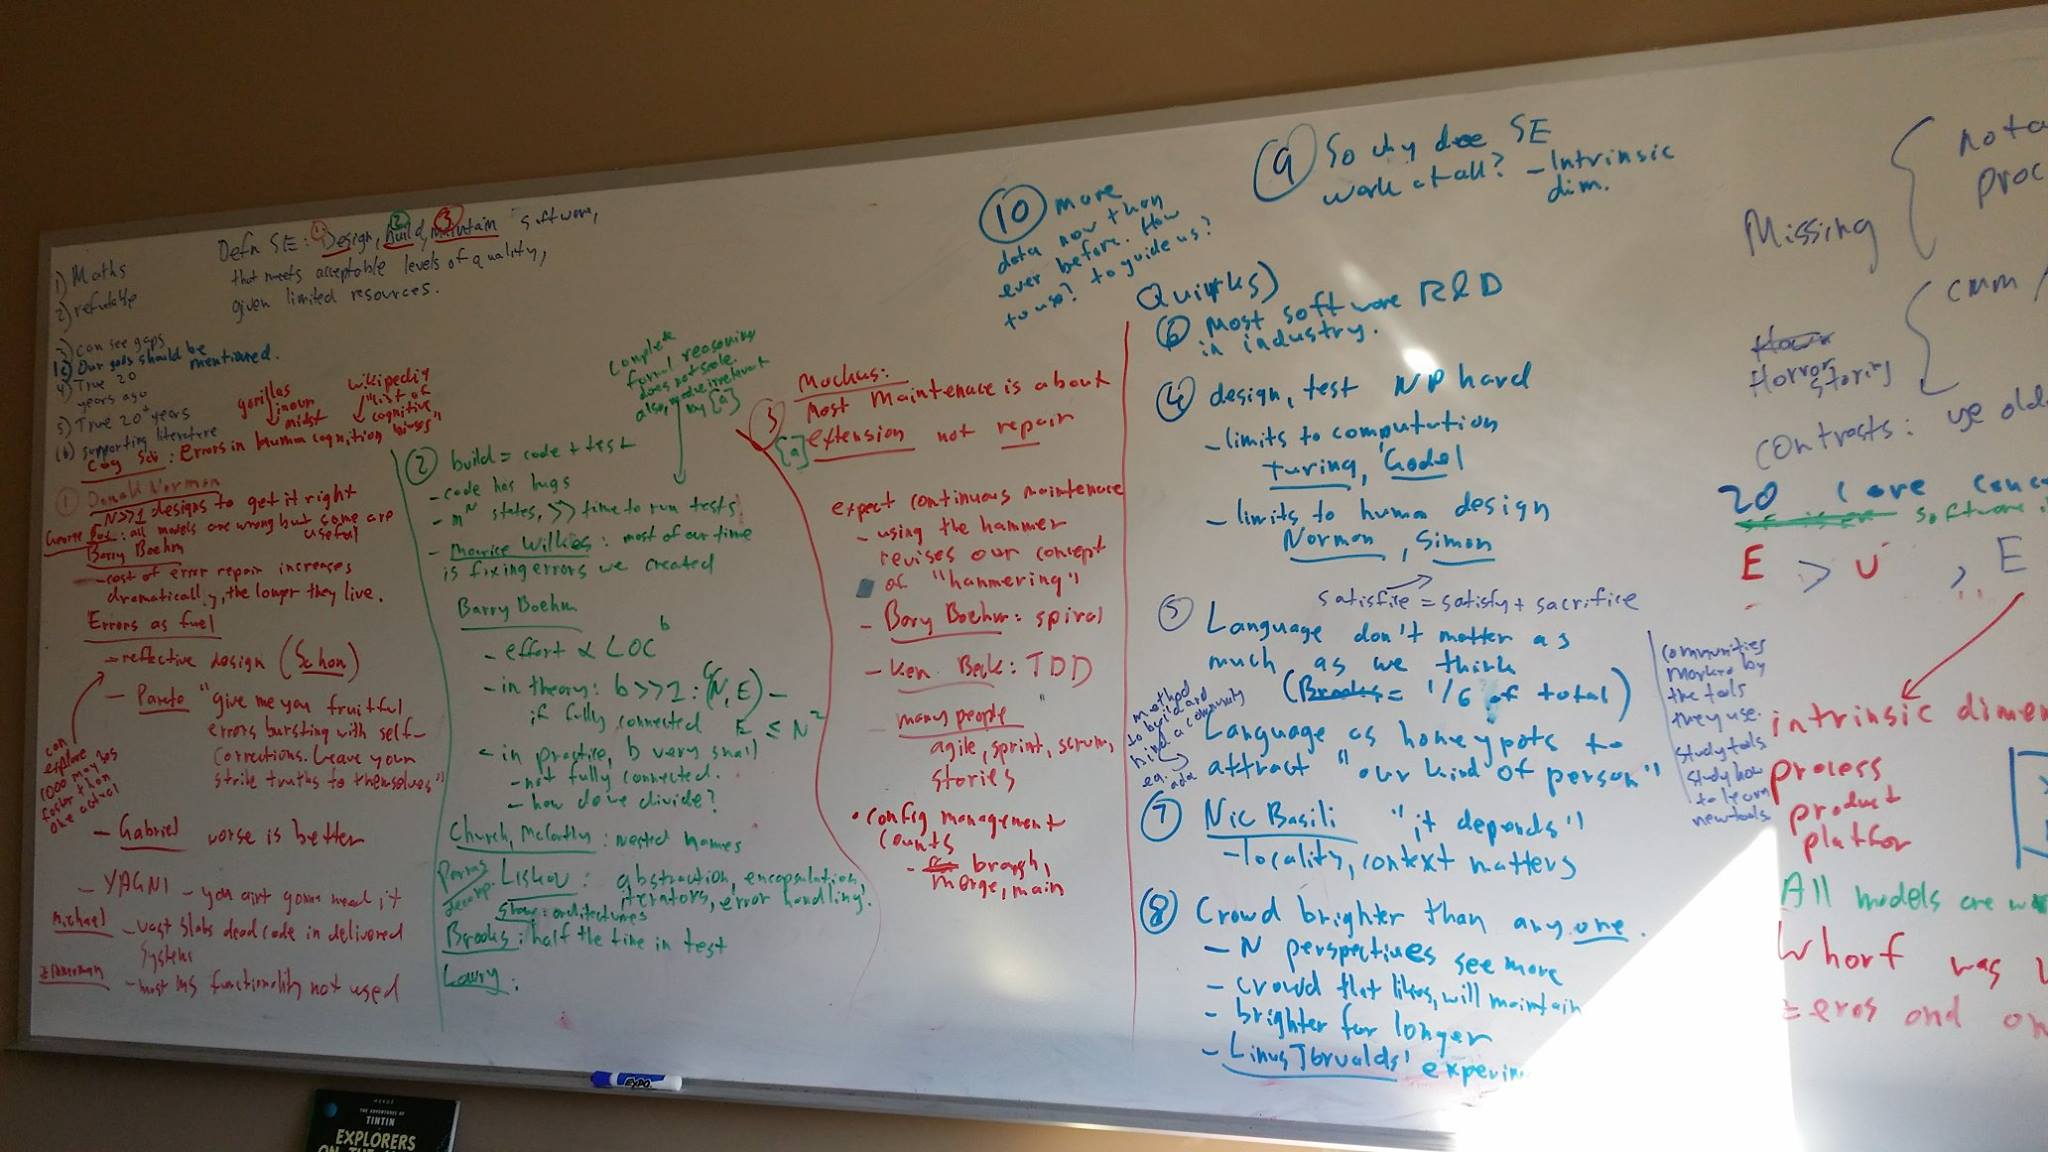 1) Maths
2) refutable
3) can see gaps
Our gods should be mentioned.
4) True 20 years ago
5) True 20+ years
(6) supporting literature
Defn SE: ① Design, ② Build, ③ maintain software,
that meets acceptable levels of quality,
given limited resources.
gorillas
in our
midst
wikipedia
"list of
cognitive
biases"
Cog Sci: Errors in human cognition
① Donald Norman
N>>1 designs to get it right
George Box: all models are wrong but some are
useful
Barry Boehm
- cost of error repair increases
dramatically, the longer they live.
Errors as fuel
- reflective design (Schon)
- Pareto "give me you fruitful
errors bursting with self-
corrections. Leave your
strile truths to themselves"
can
explore
1000 maybes
faster than
one actual
- Gabriel worse is better
- YAGNI - you aint gonna need it
michael - vast slabs dead code in delivered
systems
zimmerman - most MS functionality not used
complete
formal reasoning
does not scale.
also, made irrelevant
by [a]
② build = code + test
- code has bugs
- m^N states, >> time to run tests
- Maurice Wilkes: most of our time
is fixing errors we created
Barry Boehm
- effort α LOC^b
- in theory: b>>1: G(N,E) -
if fully connected E ≤ N²
- in practice, b very small
- not fully connected.
- how do we divide?
Church, McCarthy: nested names
Parnas
decomp.
Liskov: abstraction, encapsulation,
iterators, error handling!
Shaw: architectures
Brooks: half the time in test
Lowry:
③ Mockus:
Most Maintenace is about
[a] extension not repair
expect continuous maintenace
- using the hammer
revises our concept
of "hammering"
- Bary Boehm: spiral
- Ken. Beck: TDD
- many people
agile, sprint, scrum,
stories
• config management
counts
- branch,
merge, main
⑩ more
data now than
ever before. How
to use? to guide us?
⑨ So why doe SE
work at all? - Intrinsic
dim.
Quirks)
⑥ Most software R&D
in industry.
④ design, test NP hard
- limits to computation
Turing, Godel
- limits to human design
Norman, Simon
satisfice = satisfy + sacrifice
⑤ Language don't matter as
much as we think
(Brooks = 1/6 of total)
Language as honeypots to
attract "our kind of person"
method
to build and
find a community
eg. ada
⑦ Vic Basili "it depends"
- locality, context matters
⑧ Crowd brighter than any one.
- N perspectives see more
- crowd that likes, will maintain
- brighter for longer
- Linus Torvalds' experim
communities
marked by
the tools
they use.
study tools
study how
to learn
new tools
Missing
nota
proc
Horror
storing
cmm /
contrasts: use old
20 core conc
software
E > U , E
intrinsic dimen
process
product
platfor
All models are w
Whorf was
zeros and on
EXPO
HERGÉ
THE ADVENTURES OF
TINTIN
EXPLORERS
ON THE